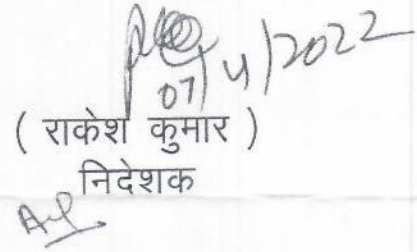 07/4/2022
( राकेश कुमार )
निदेशक